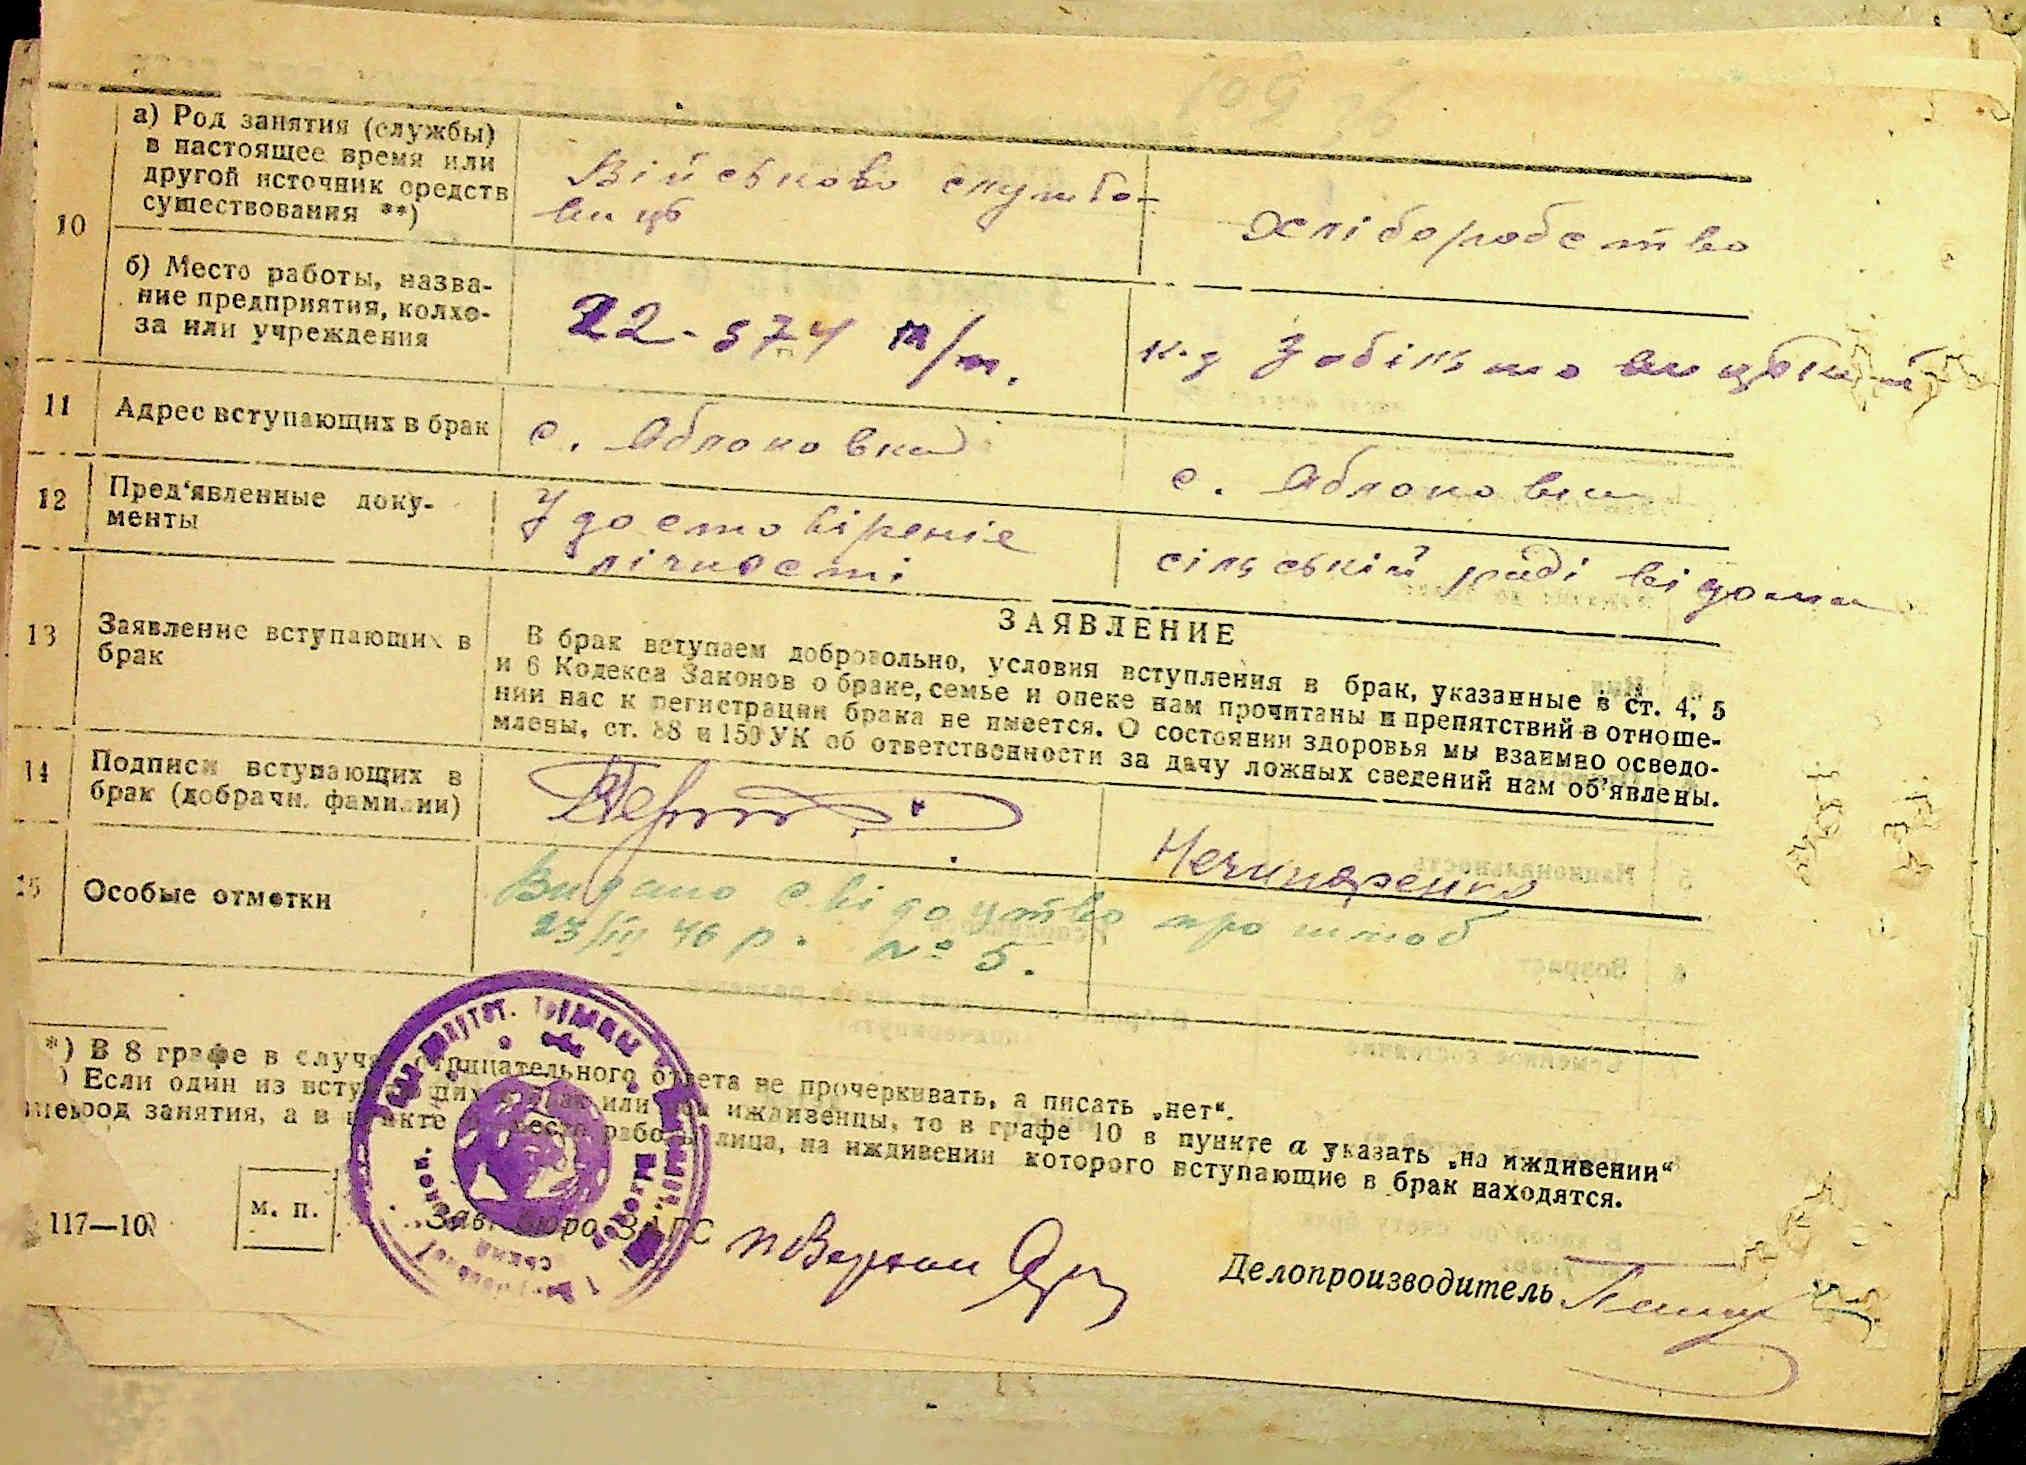 10
а) Род занятия (службы)
в настоящее время или
другой источник средств
существования **)
Військово службо-
виць
хліборобство
б) Место работы, назва-
ние предприятия, колхо-
за или учреждения
22-574 п/п.
к-з
11
Адрес вступающих в брак
с. Яблоновка
с. Яблоновка
12
Пред'явленные доку-
менты
Удостовіреніє
лічності
сільській раді відома
13
Заявление вступающих в
брак
ЗАЯВЛЕНИЕ
В брак вступаем добровольно, условия вступления в брак, указанные в ст. 4, 5
и 6 Кодекса Законов о браке, семье и опеке нам прочитаны и препятствий в отноше-
нии нас к регистрации брака не имеется. О состоянии здоровья мы взаимно осведо-
млены, ст. 88 и 150 УК об ответственности за дачу ложных сведений нам об'явлены.
14
Подписи вступающих в
брак (добрачн. фамилии)
Нечипоренко
15
Особые отметки
Видано свідоцтво про шлюб
23/III 46 р. № 5.
*) В 8 графе в случае отрицательного ответа не прочеркивать, а писать „нет“.
) Если один из вступающих в брак или оба иждивенцы, то в графе 10 в пункте а указать „на иждивении“
род занятия, а в пункте б место работы лица, на иждивении которого вступающие в брак находятся.
117—10
м. п.
Зав. Бюро ЗАГС
Делопроизводитель